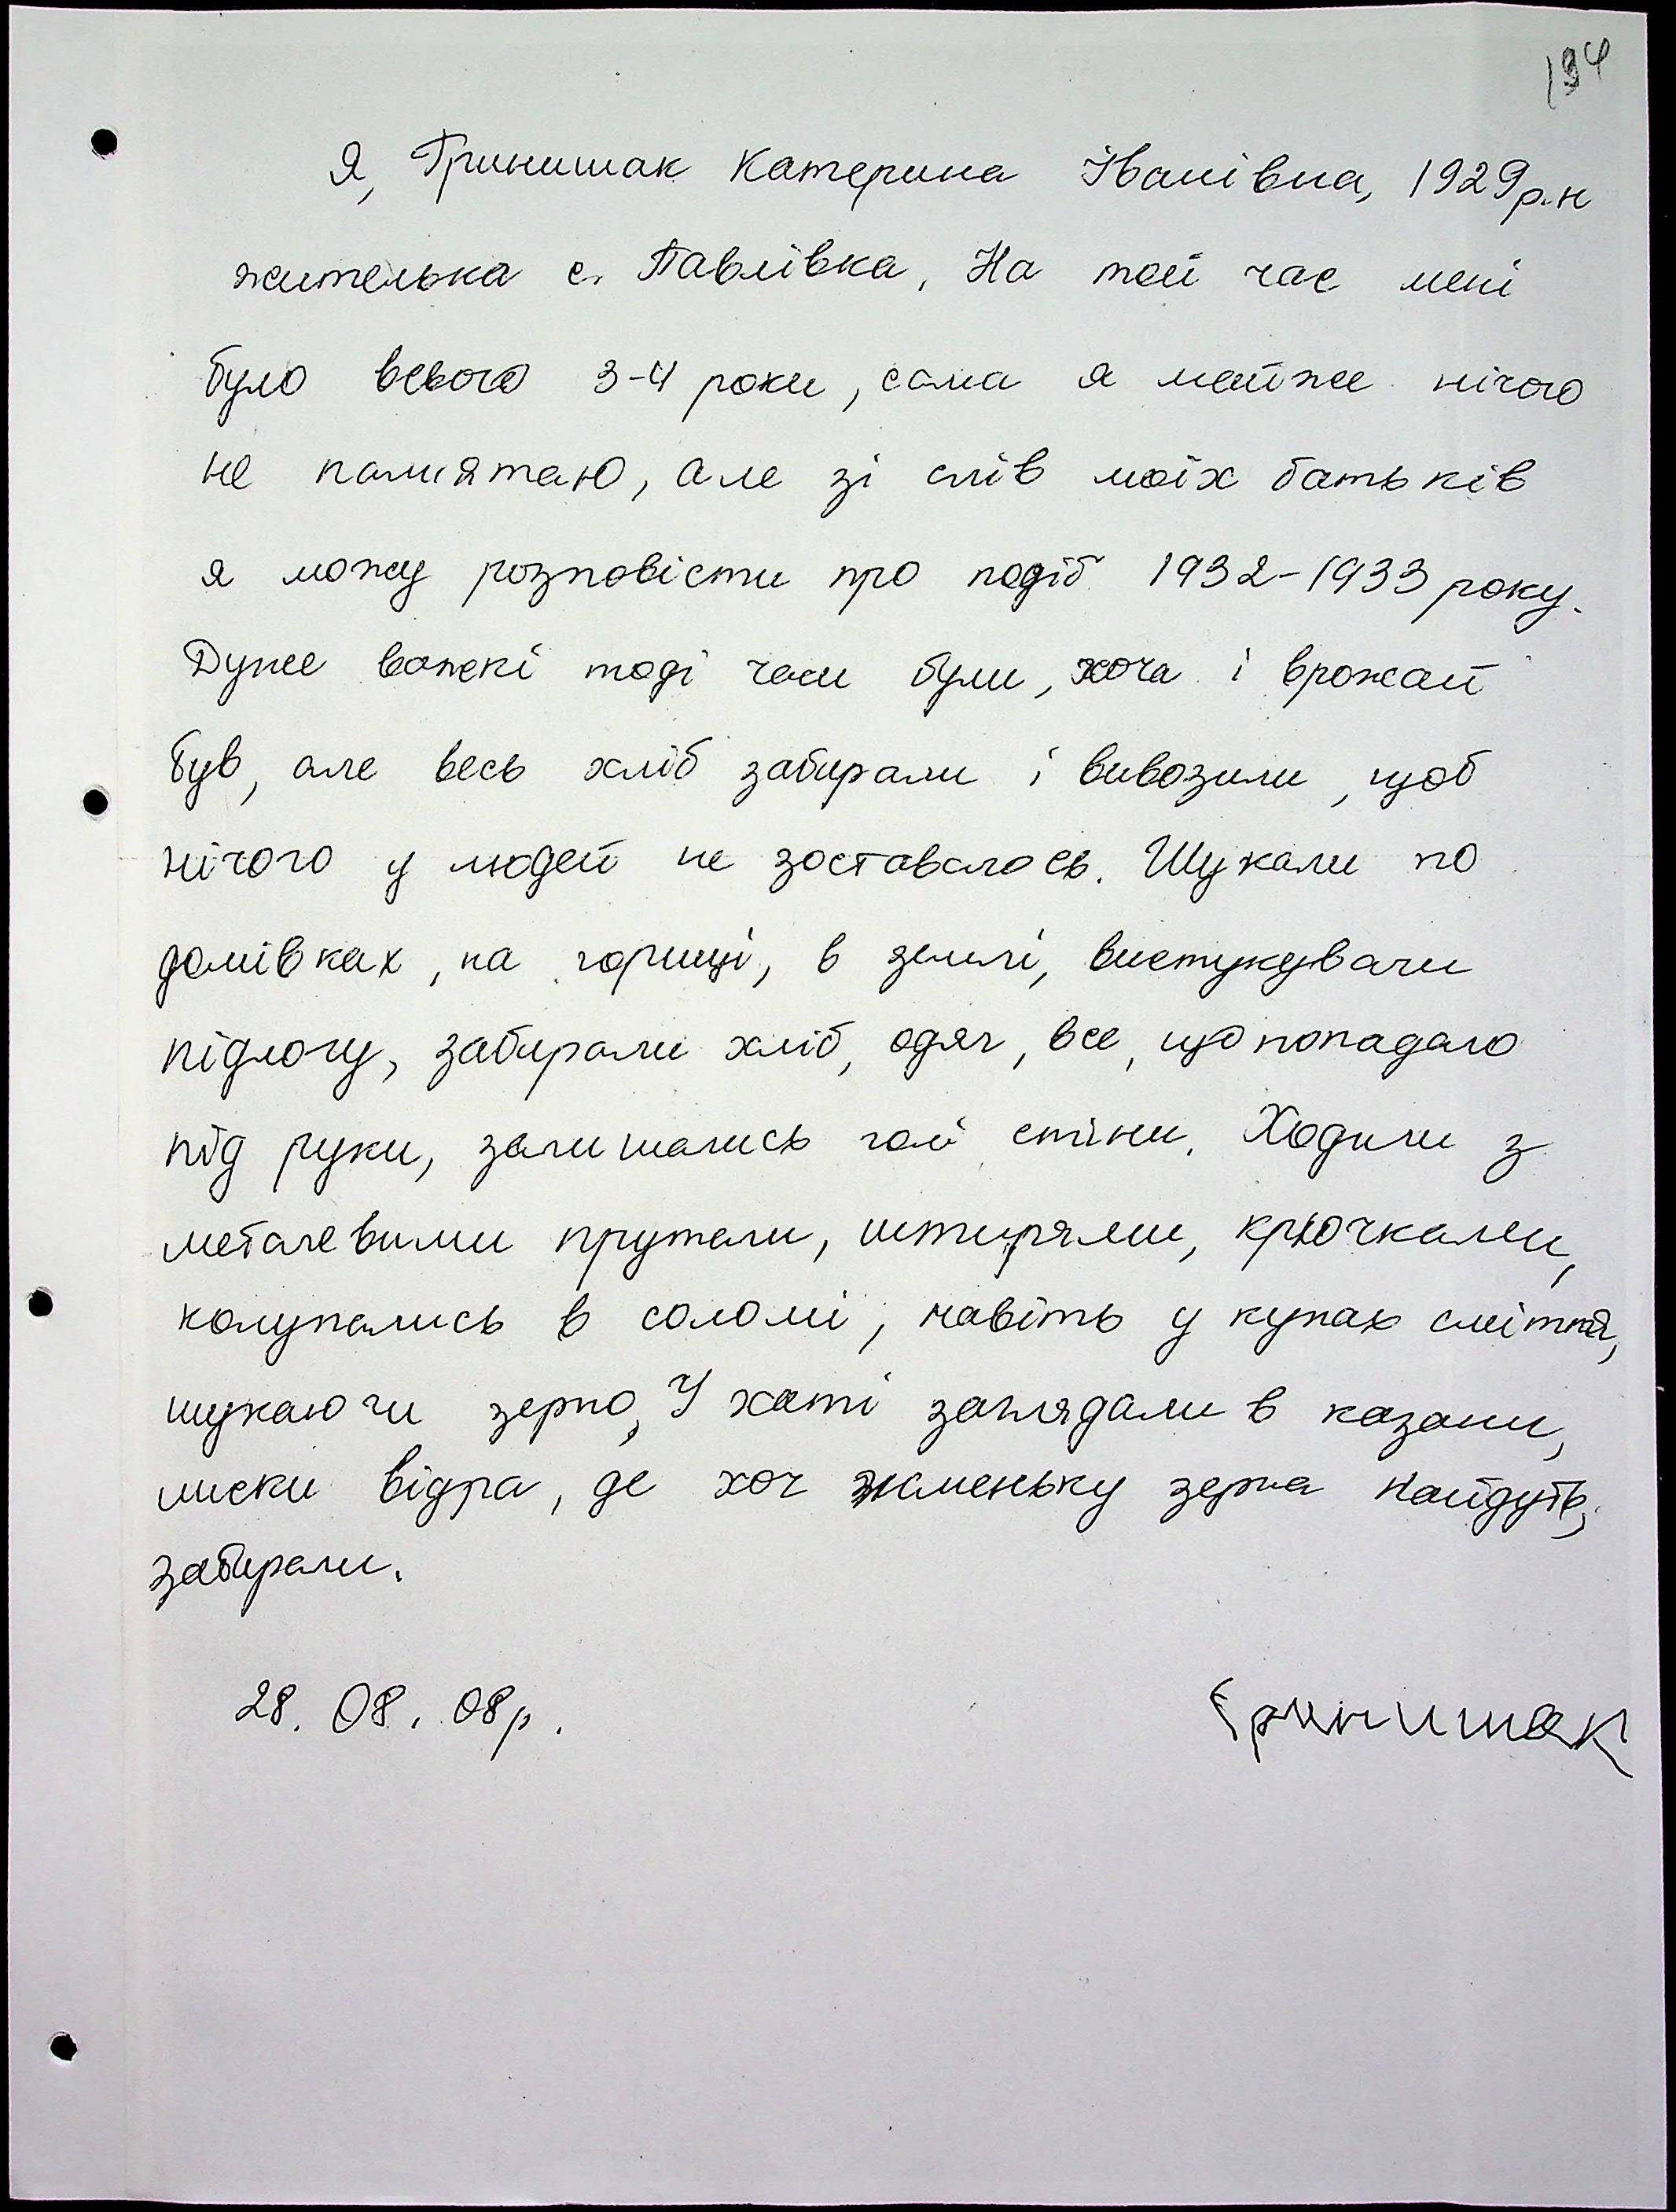 194
Я, Гринишак Катерина Іванівна, 1929р.н
жителька с. Павлівка, На той час мені
було всього 3-4 роки, сама я майже нічого
не памʼятаю, але зі слів моїх батьків
я можу розповісти про події 1932-1933 року.
Дуже важкі тоді часи були, хоча і врожай
був, але весь хліб забирали і вивозили, щоб
нічого у людей не зоставалось. Шукали по
домівках, на горищі, в землі, вистукували
підлогу, забирали хліб, одяг, все, що попадало
під руки, залишались голі стіни. Ходили з
металевими прутами, штирями, крючками,
колупались в соломі, навіть у купах сміття,
шукаючи зерно, У хаті заглядали в казани,
миски відра, де хоч жменьку зерна найдуть,
забирали.
28. 08. 08р.
Гринишак